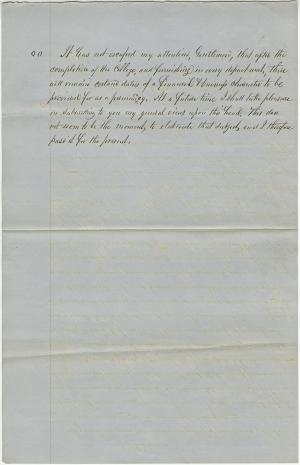 It has not escaped my attention, Gentlemen, that after the
completion of the College, and furnishing in every department, there
will remain certain duties of a Financial & Onerous character to be
provided for as a
At a future time I shall take pleasure
in submitting to you my general views upon this head. This does
not seem to be the moment, to elaborate that subject, and I therefore
pass it for the present.